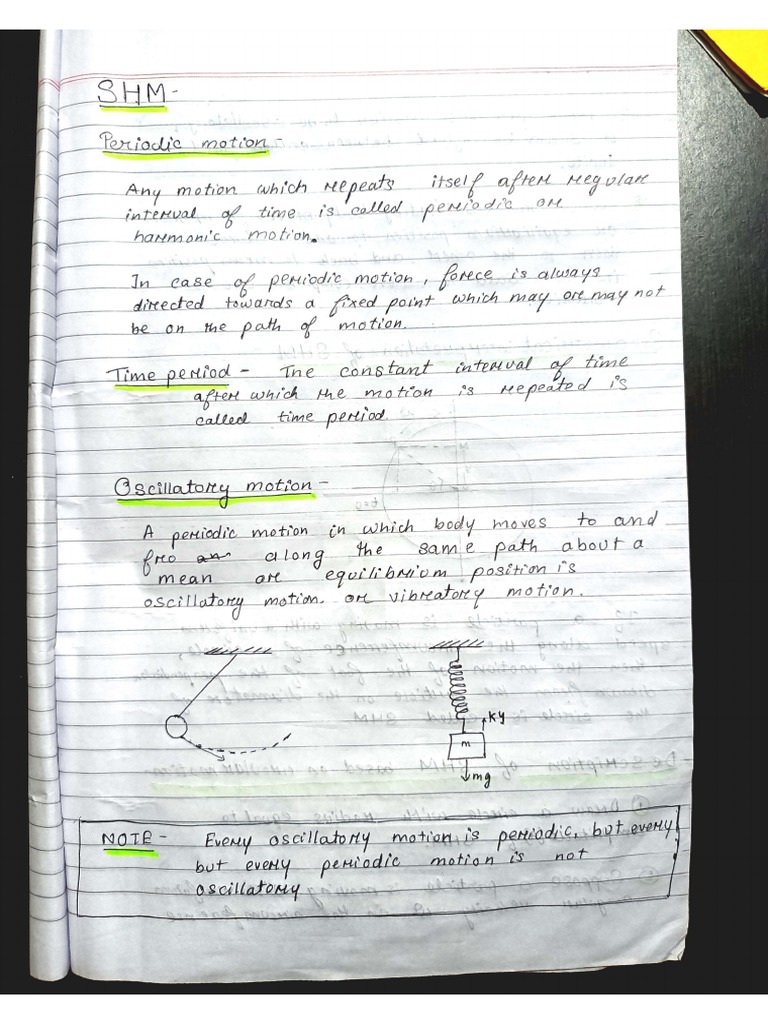 SHM-
Periodic motion-
Any motion which repeats itself after regular
interval of time is called periodic or
harmonic motion.
In case of periodic motion, force is always
directed towards a fixed point which may or may not
be on the path of motion.
Time period - The constant interval of time
after which the motion is repeated is
called time period.
Oscillatory motion-
A periodic motion in which body moves to and
fro along the same path about a
mean or equilibrium position is
oscillatory motion. or vibratory motion.
ky
m
mg
NOTE- Every oscillatory motion is periodic, but every
but every periodic motion is not
oscillatory